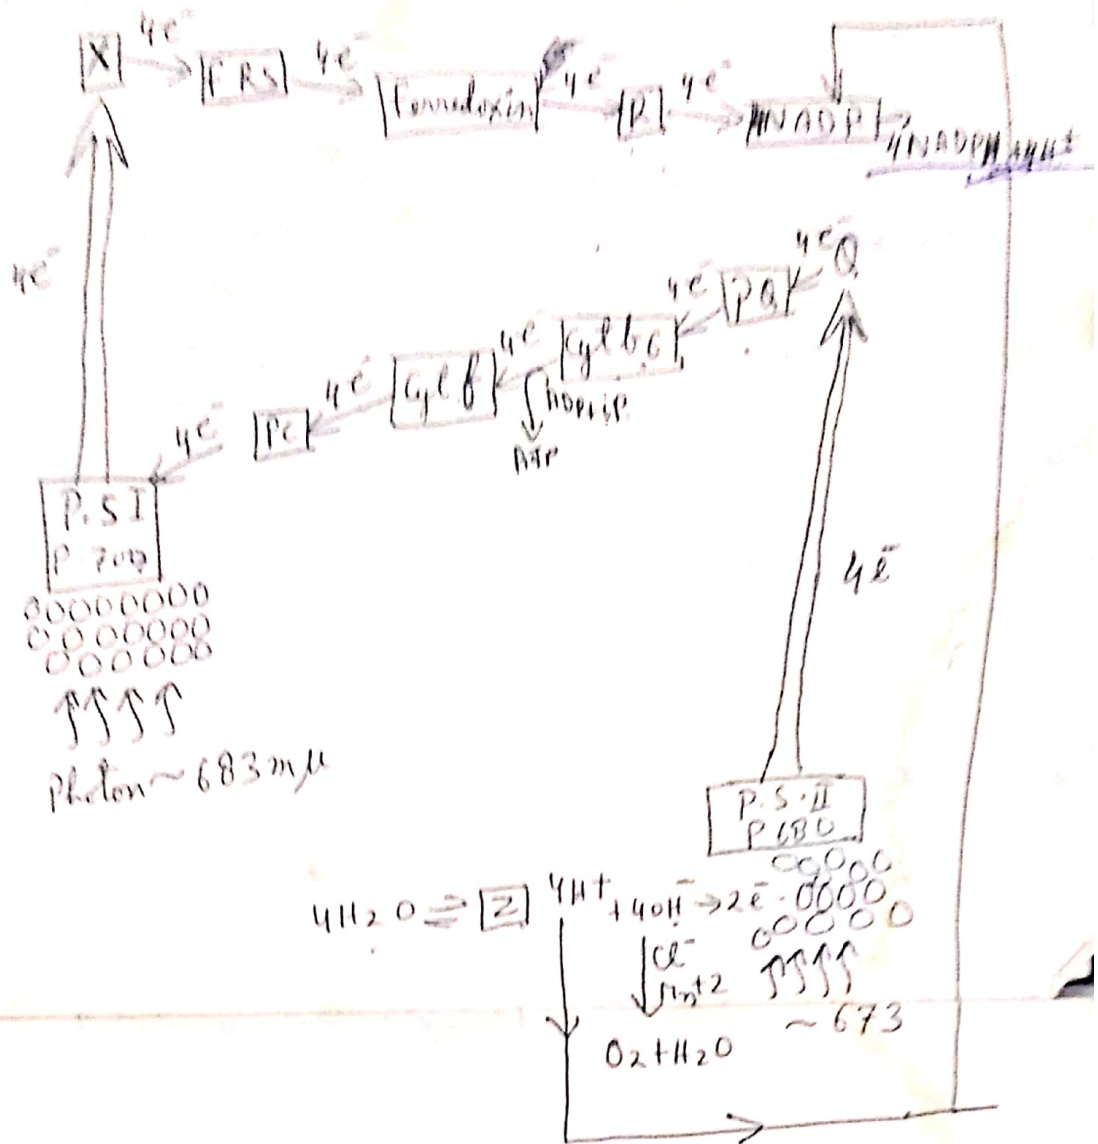 X 4e⁻ FRS 4e⁻ Ferredoxin 4e⁻ R 4e⁻ 4NADP
4NADPH+4H⁺
4e⁻
4e⁻ Q
4e⁻ PQ
4e⁻ Cyt b6
4e⁻ Cyt f
ADP+iP
ATP
4e⁻ PC
P.S I
P-700
4e⁻
Photon ~ 683 mμ
P.S.II
P680
4H₂O ⇌ Z 4H⁺ + 4OH⁻ → 2e⁻
Cl⁻
Mn+2
~ 673
O₂+H₂O